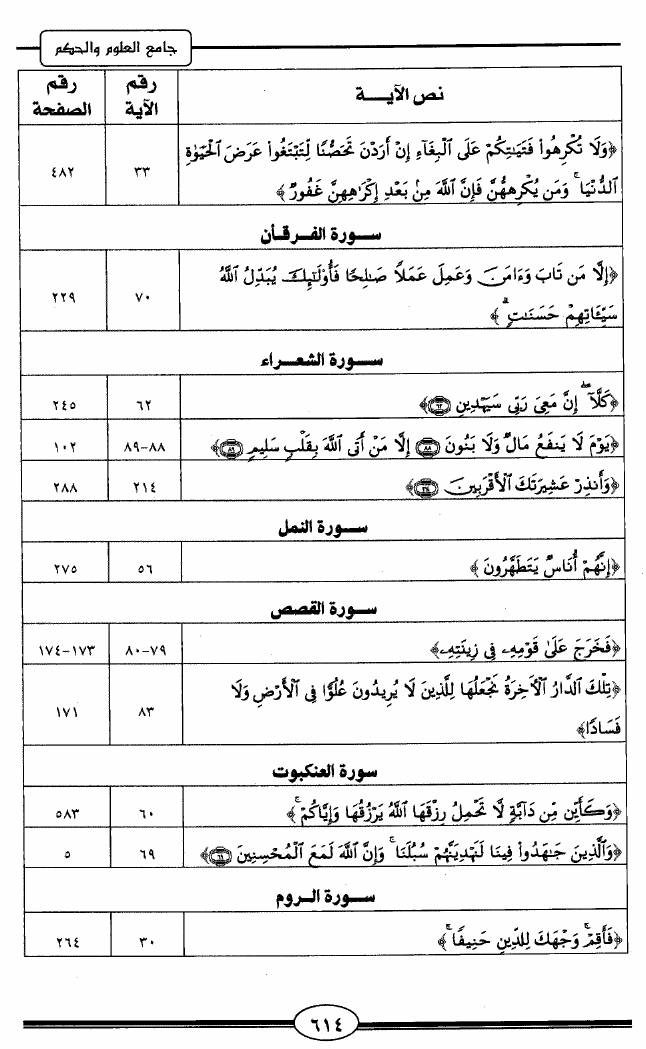 جامع العلوم والحكم
نص الآيـــة رقم الآية رقم الصفحة
﴿وَلَا تُكْرِهُوا۟ فَتَيَـٰتِكُمْ عَلَى ٱلْبِغَآءِ إِنْ أَرَدْنَ تَحَصُّنًا لِّتَبْتَغُوا۟ عَرَضَ ٱلْحَيَوٰةِ
ٱلدُّنْيَا ۚ وَمَن يُكْرِههُّنَّ فَإِنَّ ٱللَّهَ مِنۢ بَعْدِ إِكْرَٰهِهِنَّ غَفُورٌ﴾ ٣٣ ٤٨٢
سـورة الفـرقـأن
﴿إِلَّا مَن تَابَ وَءَامَنَ وَعَمِلَ عَمَلًا صَـٰلِحًا فَأُو۟لَـٰٓئِكَ يُبَدِّلُ ٱللَّهُ
سَيِّـَٔاتِهِمْ حَسَنَـٰتٍ ۗ﴾ ٧٠ ٢٢٩
سـورة الشعـراء
﴿كَلَّآ ۖ إِنَّ مَعِىَ رَبِّى سَيَهْدِينِ ٦٢﴾ ٦٢ ٢٤٥
﴿يَوْمَ لَا يَنفَعُ مَالٌ وَلَا بَنُونَ ٨٨ إِلَّا مَنْ أَتَى ٱللَّهَ بِقَلْبٍ سَلِيمٍ ٨٩﴾ ٨٨-٨٩ ١٠٢
﴿وَأَنذِرْ عَشِيرَتَكَ ٱلْأَقْرَبِينَ ٢١٤﴾ ٢١٤ ٢٨٨
سـورة النمل
﴿إِنَّهُمْ أُنَاسٌ يَتَطَهَّرُونَ﴾ ٥٦ ٢٧٥
سـورة القصص
﴿فَخَرَجَ عَلَىٰ قَوْمِهِۦ فِى زِينَتِهِۦ﴾ ٧٩-٨٠ ١٧٣-١٧٤
﴿تِلْكَ ٱلدَّارُ ٱلْـَٔاخِرَةُ نَجْعَلُهَا لِلَّذِينَ لَا يُرِيدُونَ عُلُوًّا فِى ٱلْأَرْضِ وَلَا
فَسَادًا﴾ ٨٣ ١٧١
سورة العنكبوت
﴿وَكَأَيِّن مِّن دَآبَّةٍ لَّا تَحْمِلُ رِزْقَهَا ٱللَّهُ يَرْزُقُهَا وَإِيَّاكُمْ ۚ﴾ ٦٠ ٥٨٣
﴿وَٱلَّذِينَ جَـٰهَدُوا۟ فِينَا لَنَهْدِيَنَّهُمْ سُبُلَنَا ۚ وَإِنَّ ٱللَّهَ لَمَعَ ٱلْمُحْسِنِينَ ٦٩﴾ ٦٩ ٥
سـورة الـروم
﴿فَأَقِمْ وَجْهَكَ لِلدِّينِ حَنِيفًا ۚ﴾ ٣٠ ٢٦٤
٦١٤